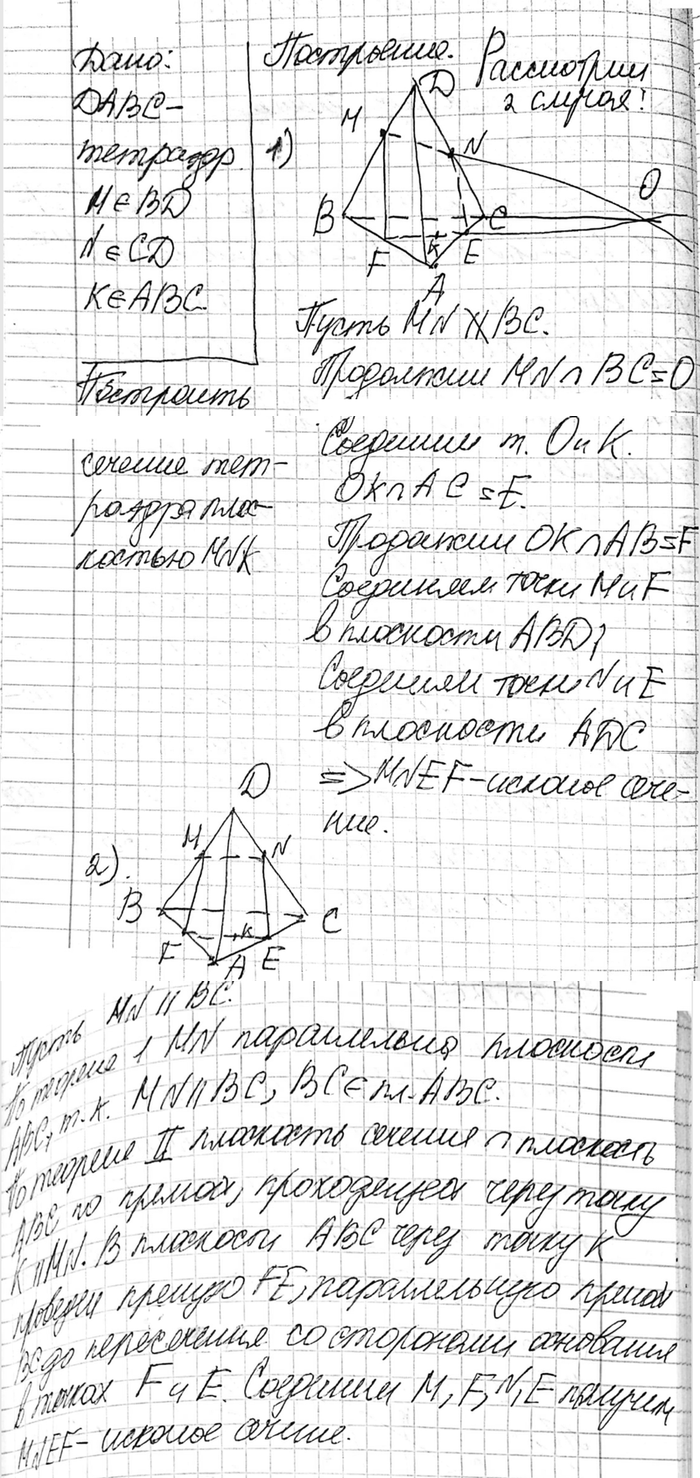 Дано:
DABC-
тетраэдр.
M∈BD
N∈CD
K∈ABC
Построить
сечение тет-
раэдра плос-
костью MNK
Построение. Рассмотрим
2 случая!
1)
D
M
N
O
B
C
F
K
E
A
Пусть MN ∦ BC.
Продолжим MN∩BC=O
Соединим т. O и K.
OK∩AC=E.
Продолжим OK∩AB=F
Соединяем точки M и F
в плоскости ABD;
Соединяем точки N и E
в плоскости ADC
=> MNEF-искомое сече-
ние.
2).
D
M
N
B
C
F
K
A
E
Пусть MN || BC.
По теореме 1 MN параллельна плоскости
ABC, т.к. MN||BC, BC∈пл.ABC.
По теореме II плоскость сечения ∩ плоскость
ABC по прямой, проходящей через точку
K || MN. В плоскости ABC через точку K
проведем прямую FE, параллельную прямой
BC до пересечения со сторонами основания
в точках F и E. Соединим M, F, N, E получим
MNEF- искомое сечение.